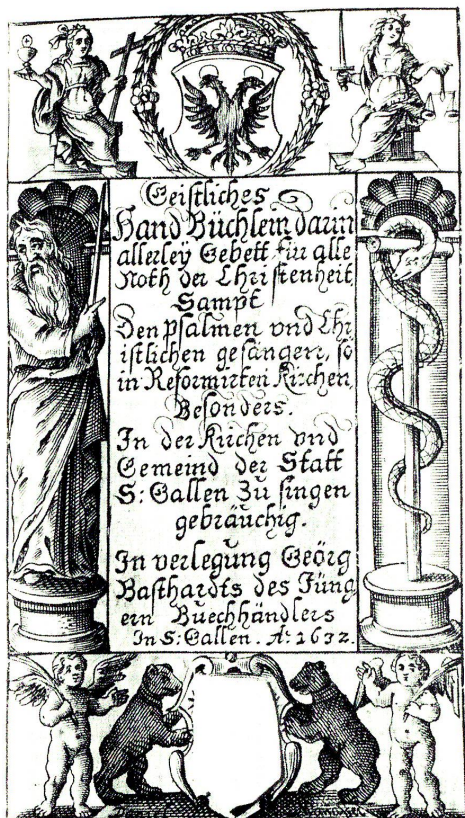 Geistliches
Hand Büchlein darin
allerley Gebett für alle
Noth der Christenheit
Sampt
Den Psalmen vnd Chr
istlichen gesängen, so
in Reformirten Kirchen
Besonders.
In der Kirchen vnd
Gemeind der Statt
S: Gallen Zu singen
gebräuchig.
In verlegung Geörg
Basthardts des Jüng
ern Buechhändlers
In S: Gallen. Aº 1632.